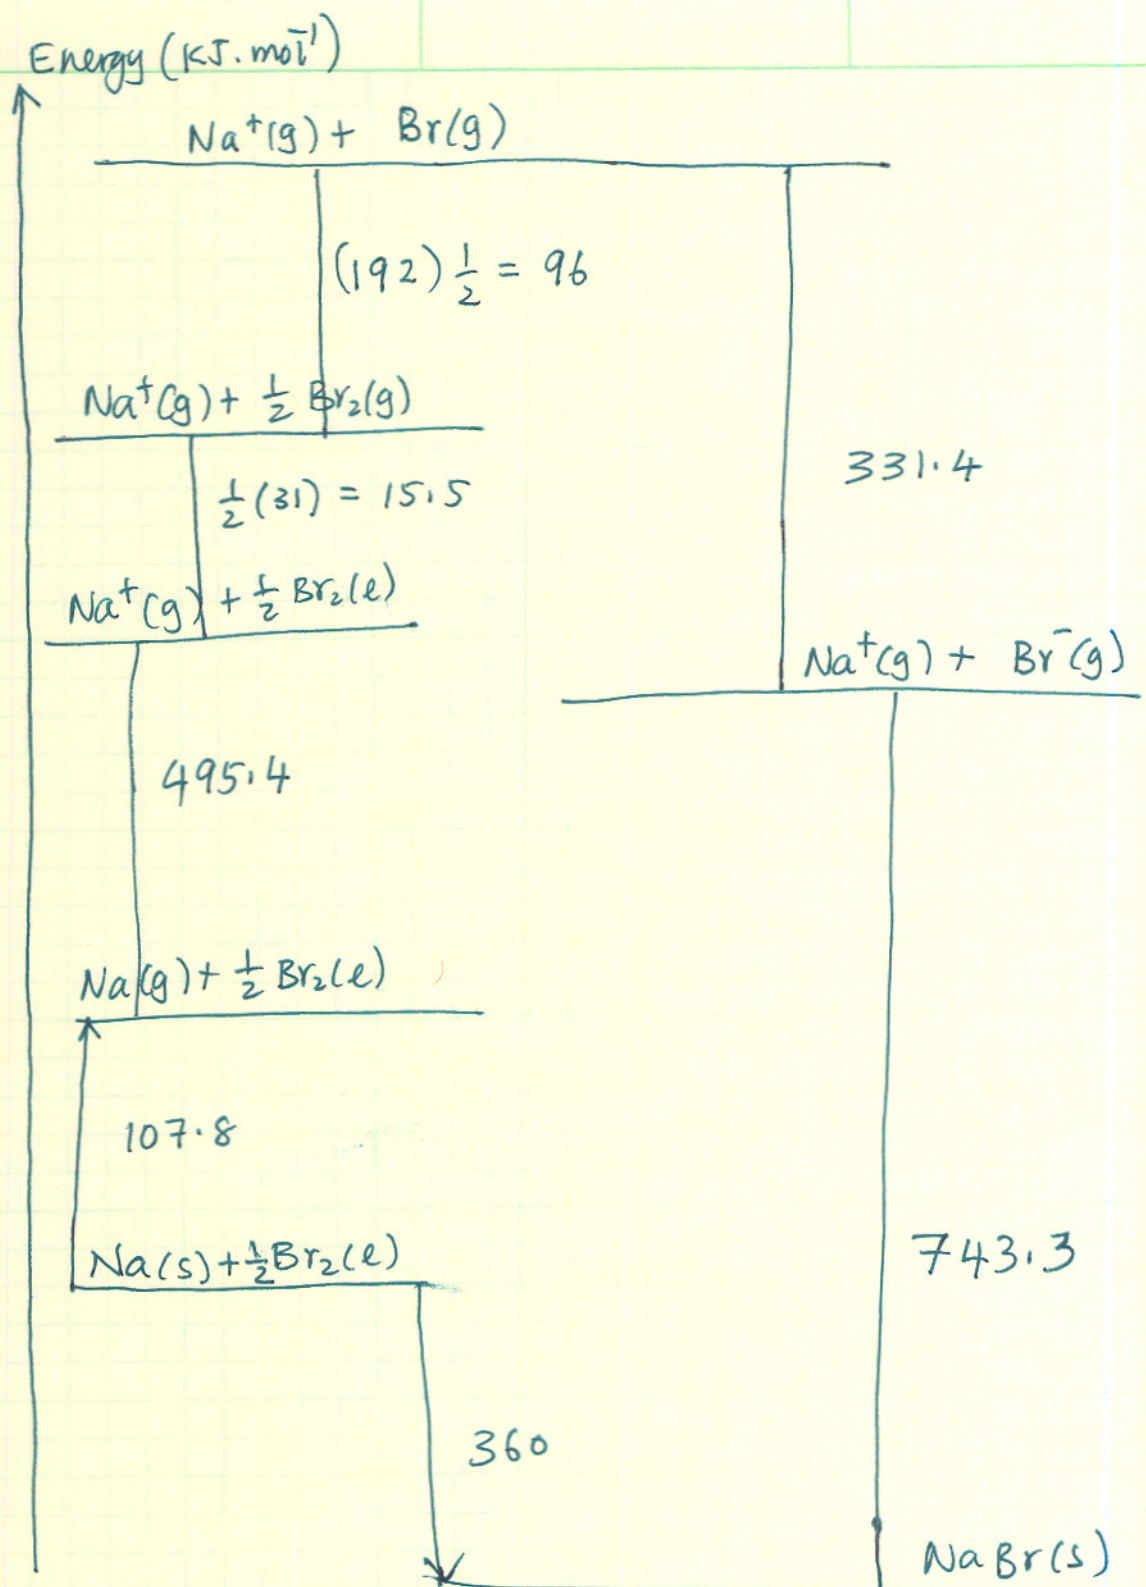 Energy (KJ.mol⁻¹)
Na⁺(g) + Br(g)
(192) ½ = 96
Na⁺(g) + ½ Br₂(g)
331.4
½ (31) = 15.5
Na⁺(g) + ½ Br₂(l)
Na⁺(g) + Br⁻(g)
495.4
Na(g) + ½ Br₂(l)
107.8
Na(s) + ½ Br₂(l)
743.3
360
NaBr(s)